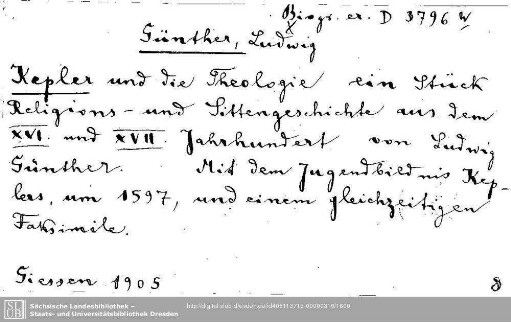 Biogr. er. D 3796 w
Günther, Ludwig
Kepler und die Theologie ein Stück
Religions- und Sittengeschichte aus dem
XVI. und XVII. Jahrhundert von Ludwig
Günther. Mit dem Jugendbildnis Kep-
lers, um 1597, und einem gleichzeitigen
Faksimile.
Giessen 1905 8
Sächsische Landesbibliothek –
Staats- und Universitätsbibliothek Dresden